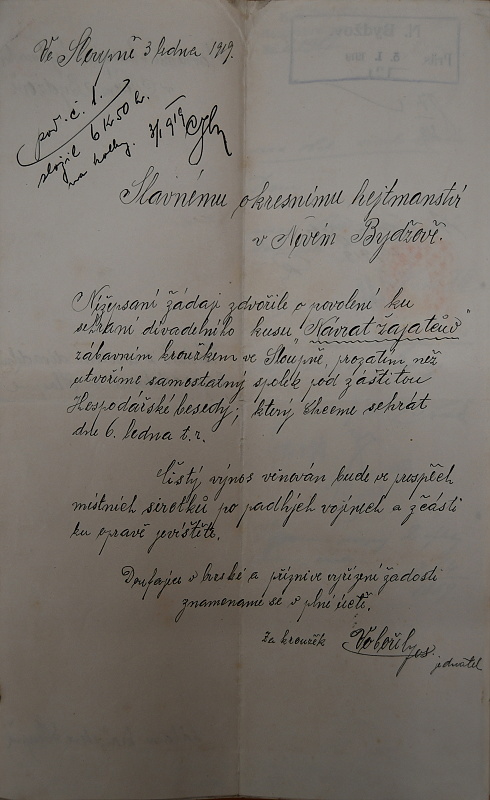 Ve Sloupně 3 ledna 1919.
poř. č. 1.
složil 6 K 50 h.
na kolky.
3/1 1919
Slavnému okresnímu hejtmanství
v Novém Bydžově.
Nížepsaní žádají zdvořile o povolení ku
sehrání divadelního kusu "Návrat zajatců"
zábavním kroužkem ve Sloupně, prozatím než
utvoříme samostatný spolek pod záštitou
Hospodářské besedy; který chceme sehrát
dne 6. ledna t. r.
Čistý výnos věnován bude ve prospěch
místních sirotků po padlých vojínech a zčásti
ku opravě jeviště.
Doufajíce v brzské a příznivé vyřízení žádosti
znamenáme se v plní úctě.
Za kroužek Vobořil Jos.
jednatel
N. Bydžov